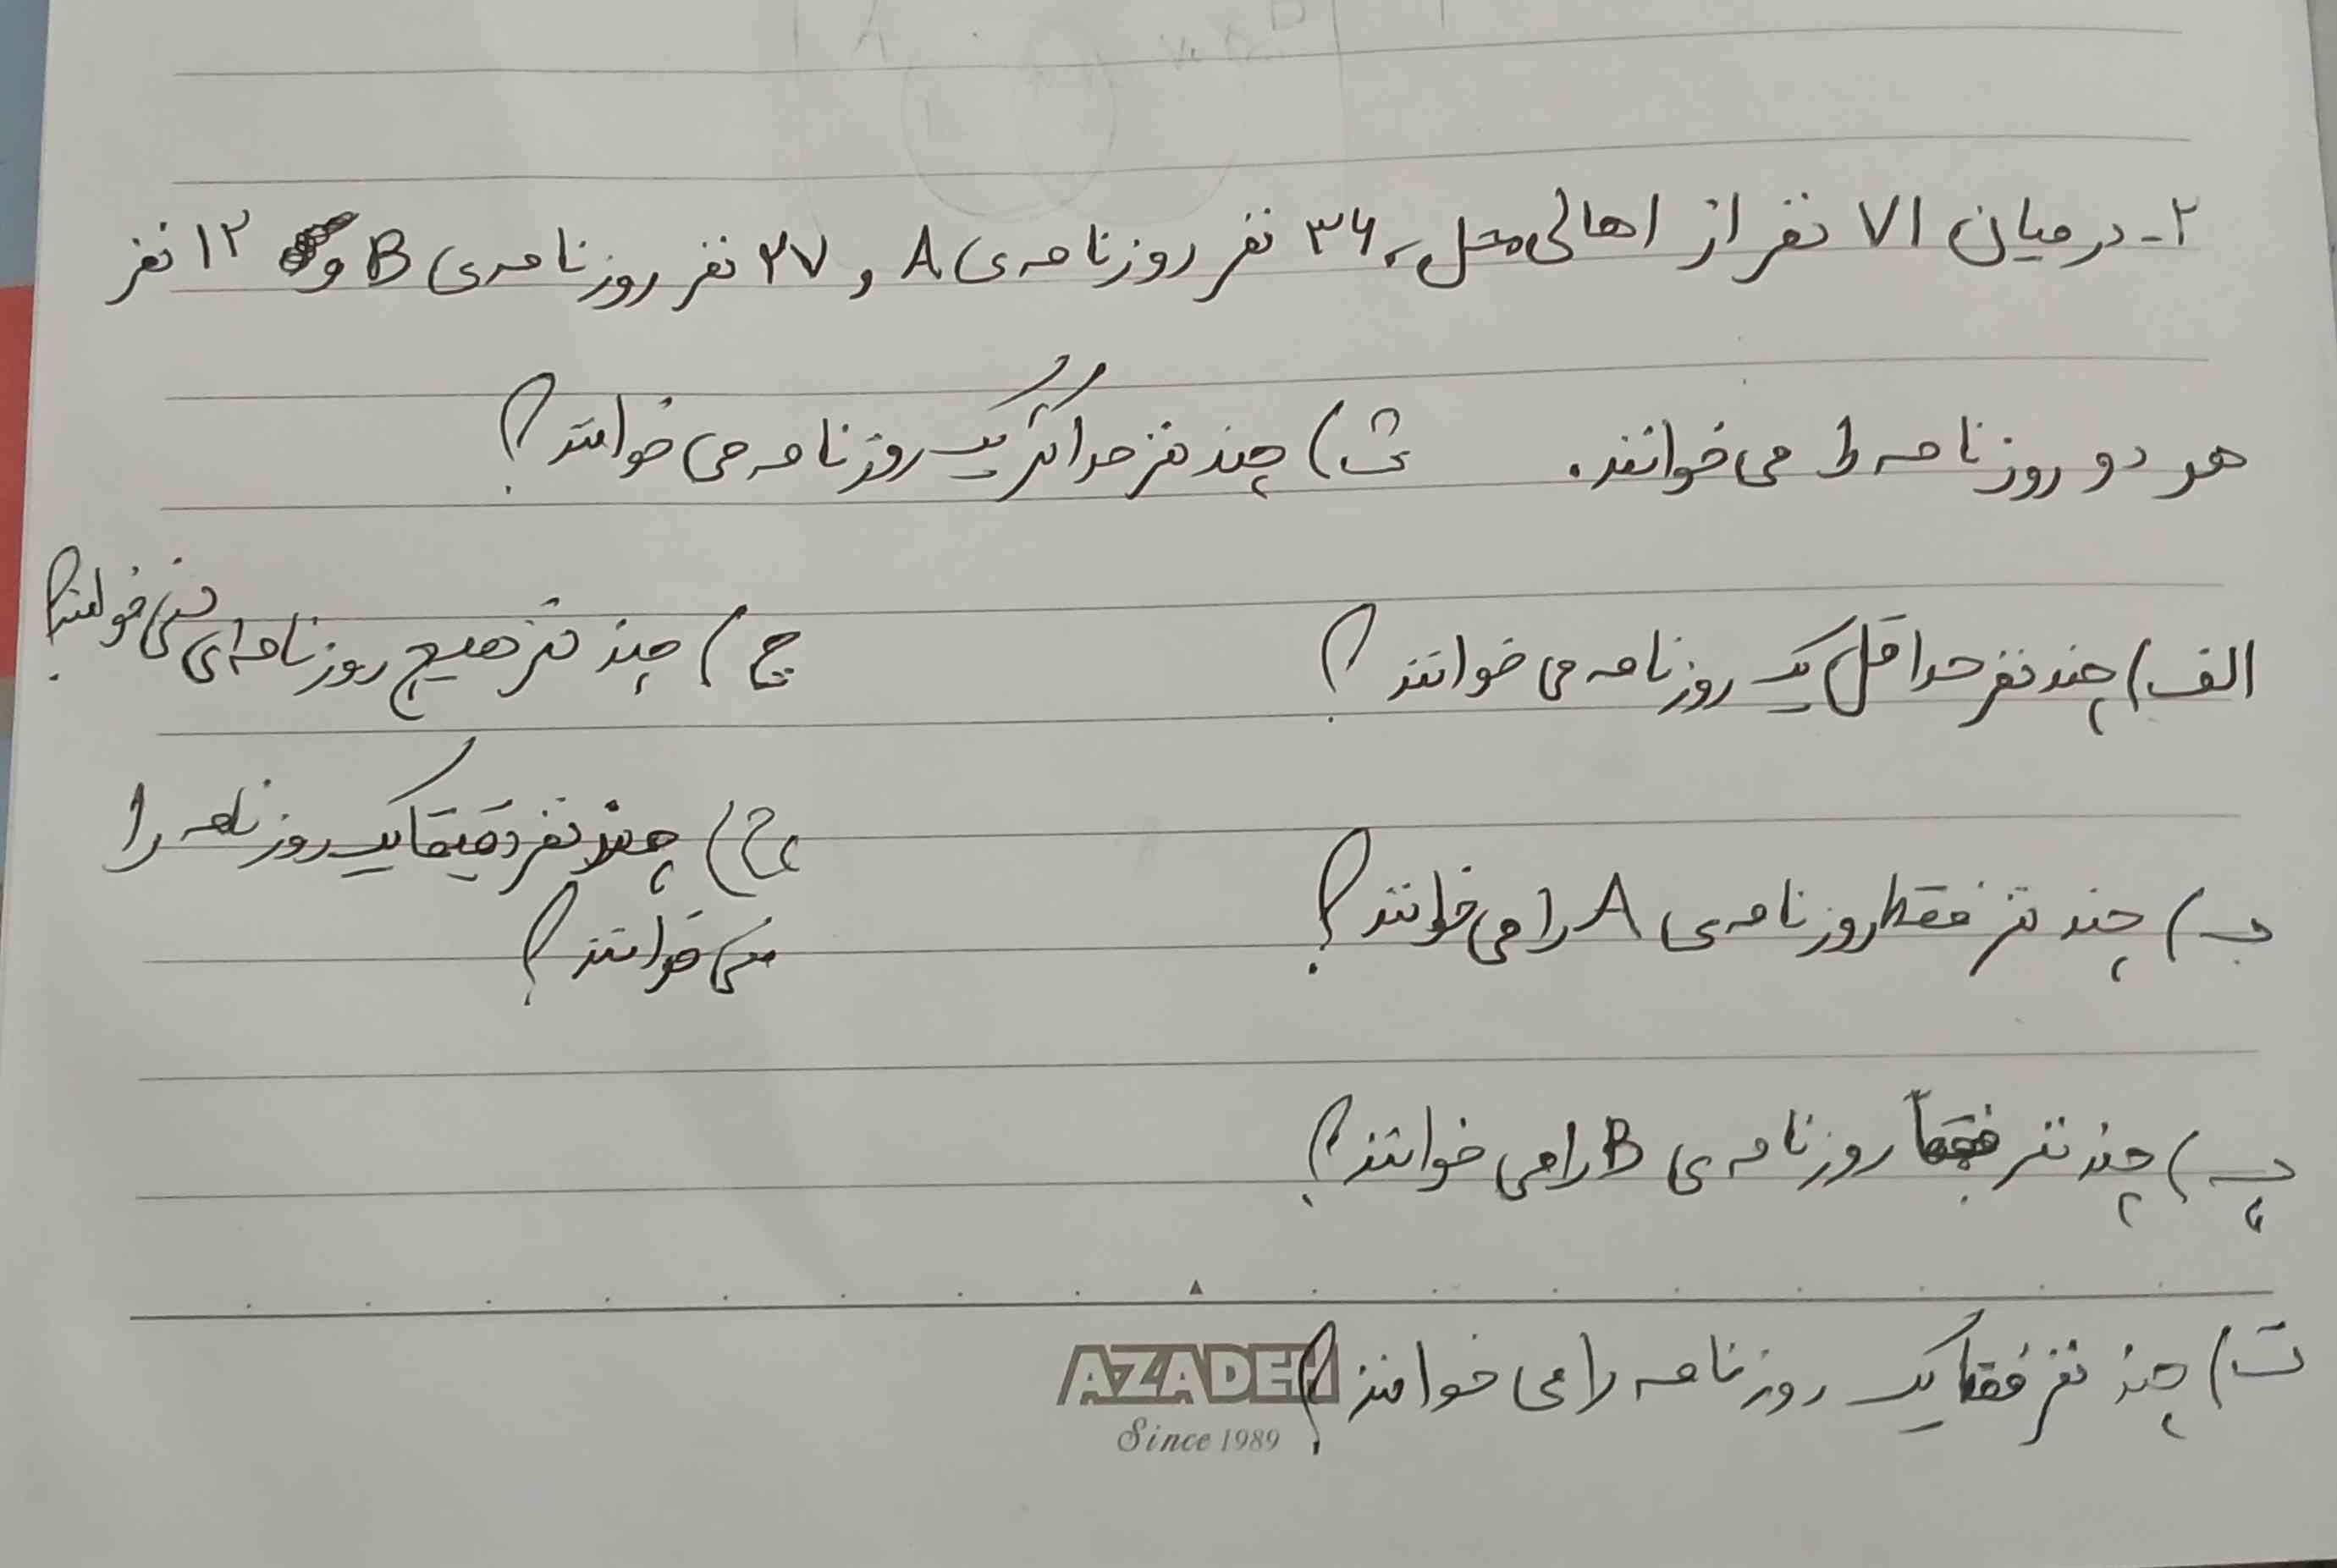 ۲- در میان ۷۱ نفر از اهالی محل، ۳۶ نفر روزنامه‌ی A و ۲۷ نفر روزنامه‌ی B و ۱۲ نفر
هر دو روزنامه را می‌خوانند.
ث) چند نفر حداکثر یک روزنامه می‌خوانند؟
الف) چند نفر حداقل یک روزنامه می‌خوانند؟
ج) چند نفر هیچ روزنامه‌ای نمی‌خوانند؟
ب) چند نفر فقط روزنامه‌ی A را می‌خوانند؟
چ) چند نفر دقیقا یک روزنامه را
نمی‌خوانند؟
پ) چند نفر فقط روزنامه‌ی B را می‌خوانند؟
ت) چند نفر فقط یک روزنامه را می‌خوانند؟
AZADEH
Since 1989